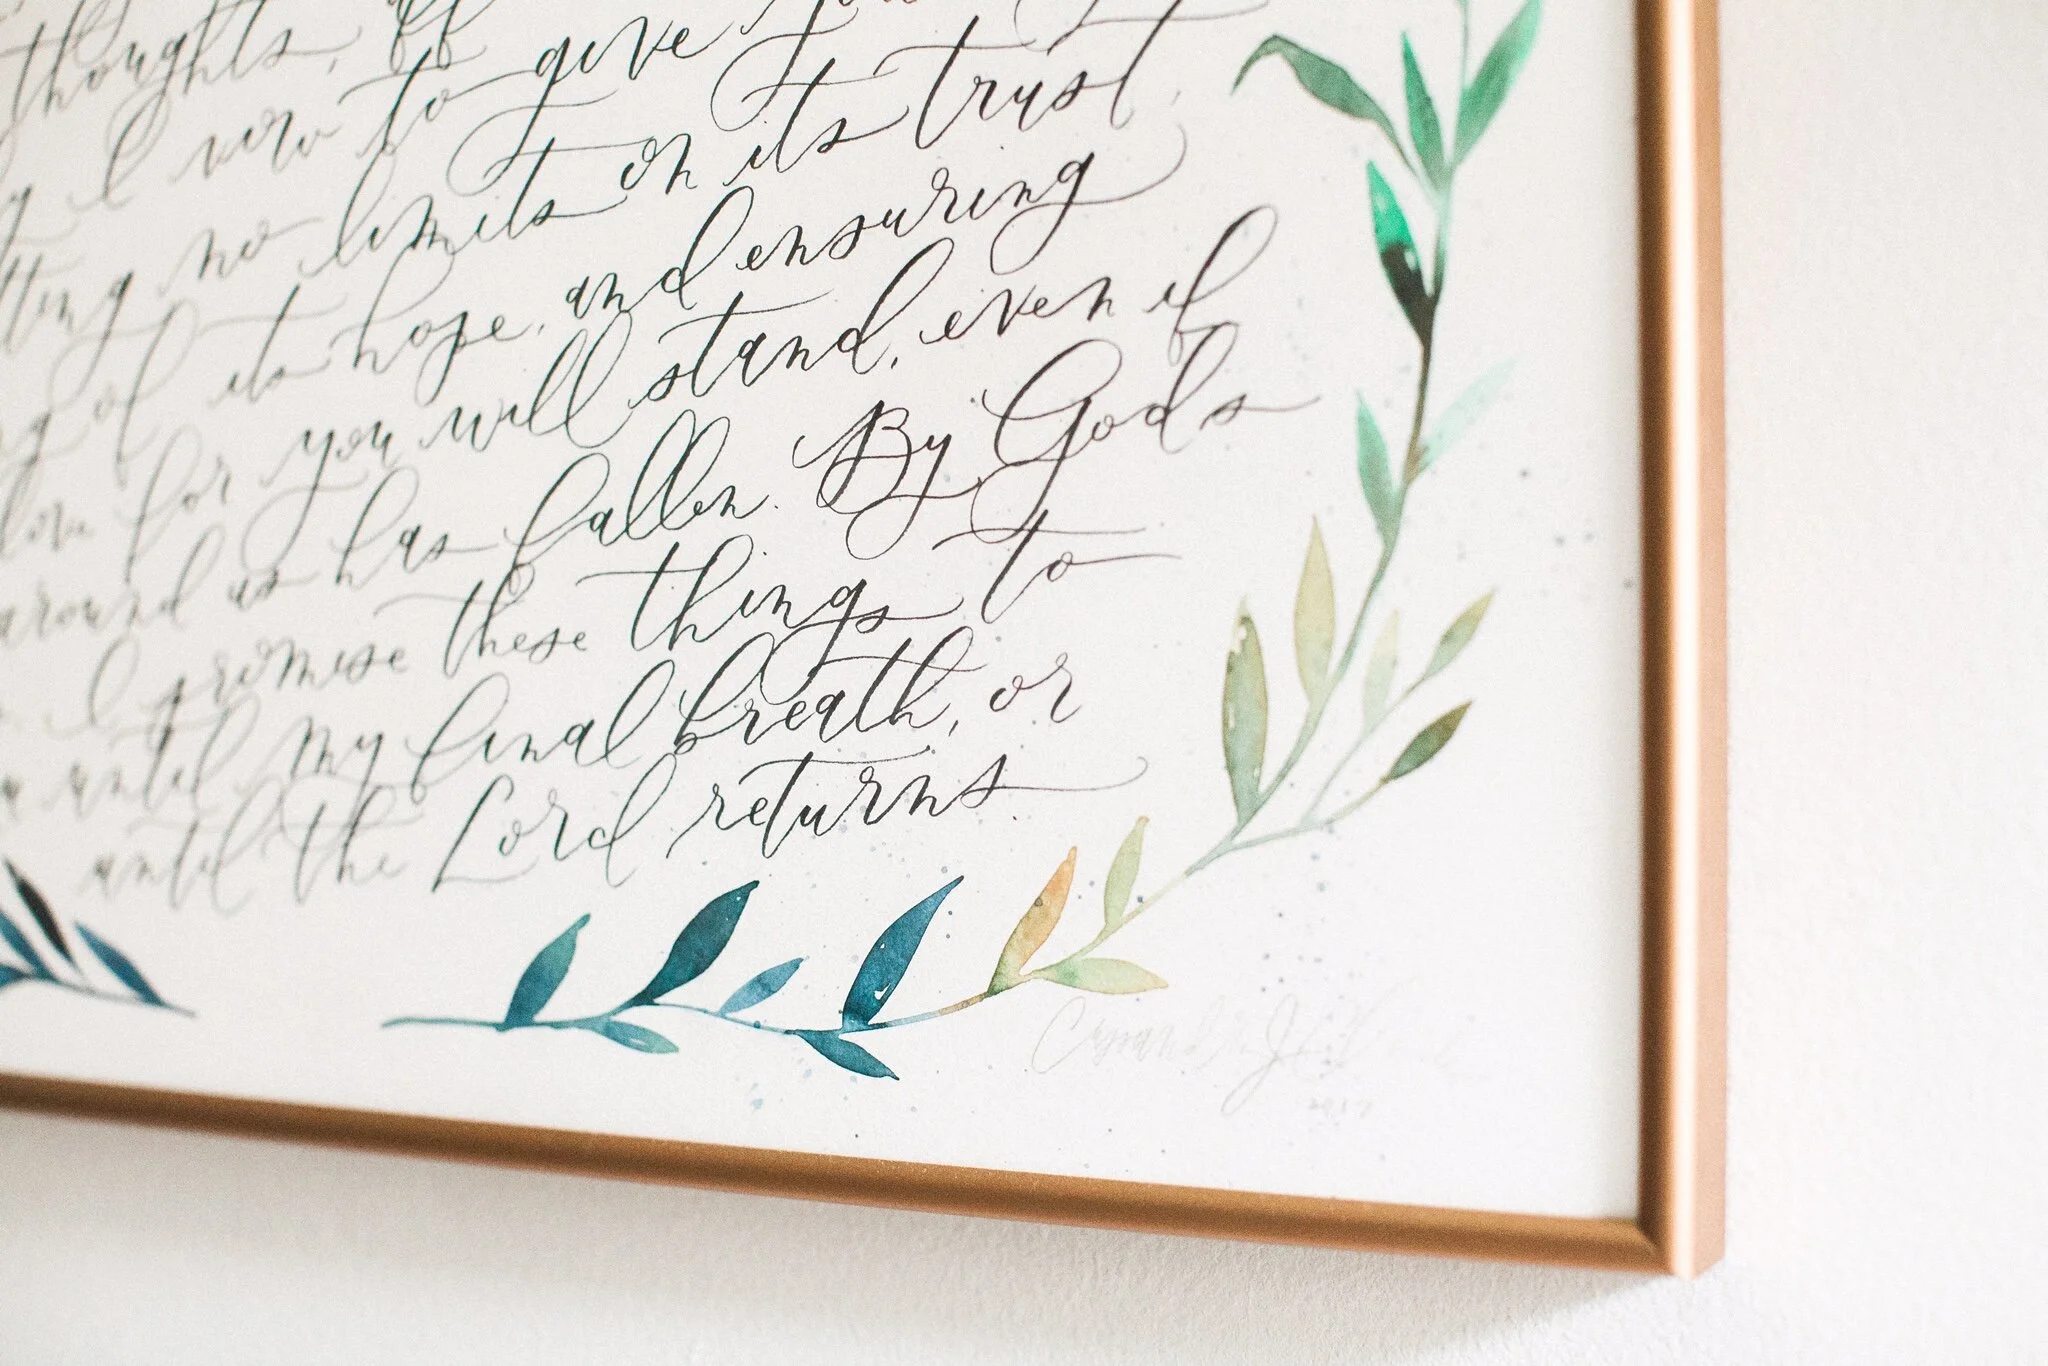 thoughts,
I vow to give
no limits on its trust,
of its hope, and ensuring
for you will stand, even if
around us has fallen. By God's
I promise these things to
until my final breath, or
until the Lord returns